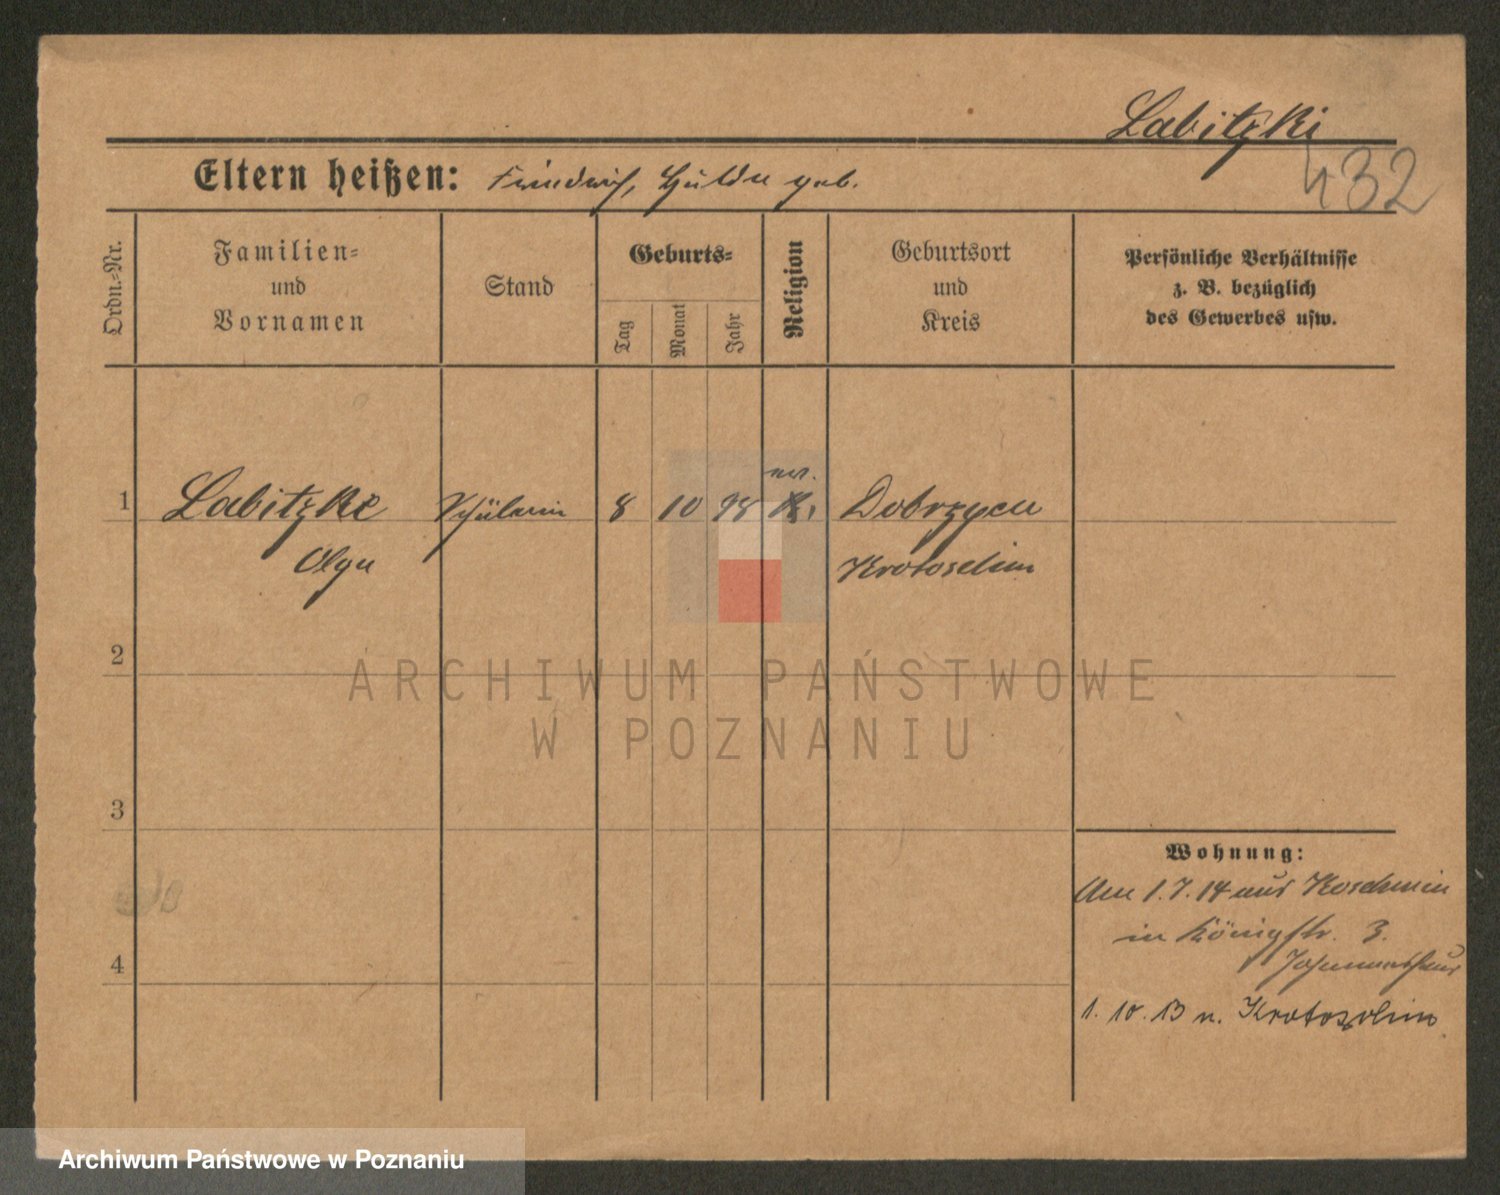 Labitzki
432
Eltern heißen: Friedrich, Hulda geb.
Ordn.-Nr.
Familien-
und
Vornamen
Stand
Geburts-
Tag
Monat
Jahr
Religion
Geburtsort
und
Kreis
Persönliche Verhältnisse
z. B. bezüglich
des Gewerbes usw.
1 Labitzke Schülerin 8 10 98 ev. Dobrzyca
Olga Krotoschin
2
3
4
Wohnung:
Am 1.7.14 aus Koschmin
in Königstr. 3.
Johanneshaus
1. 10. 13 n. Krotoschin
ARCHIWUM PAŃSTWOWE
W POZNANIU
Archiwum Państwowe w Poznaniu